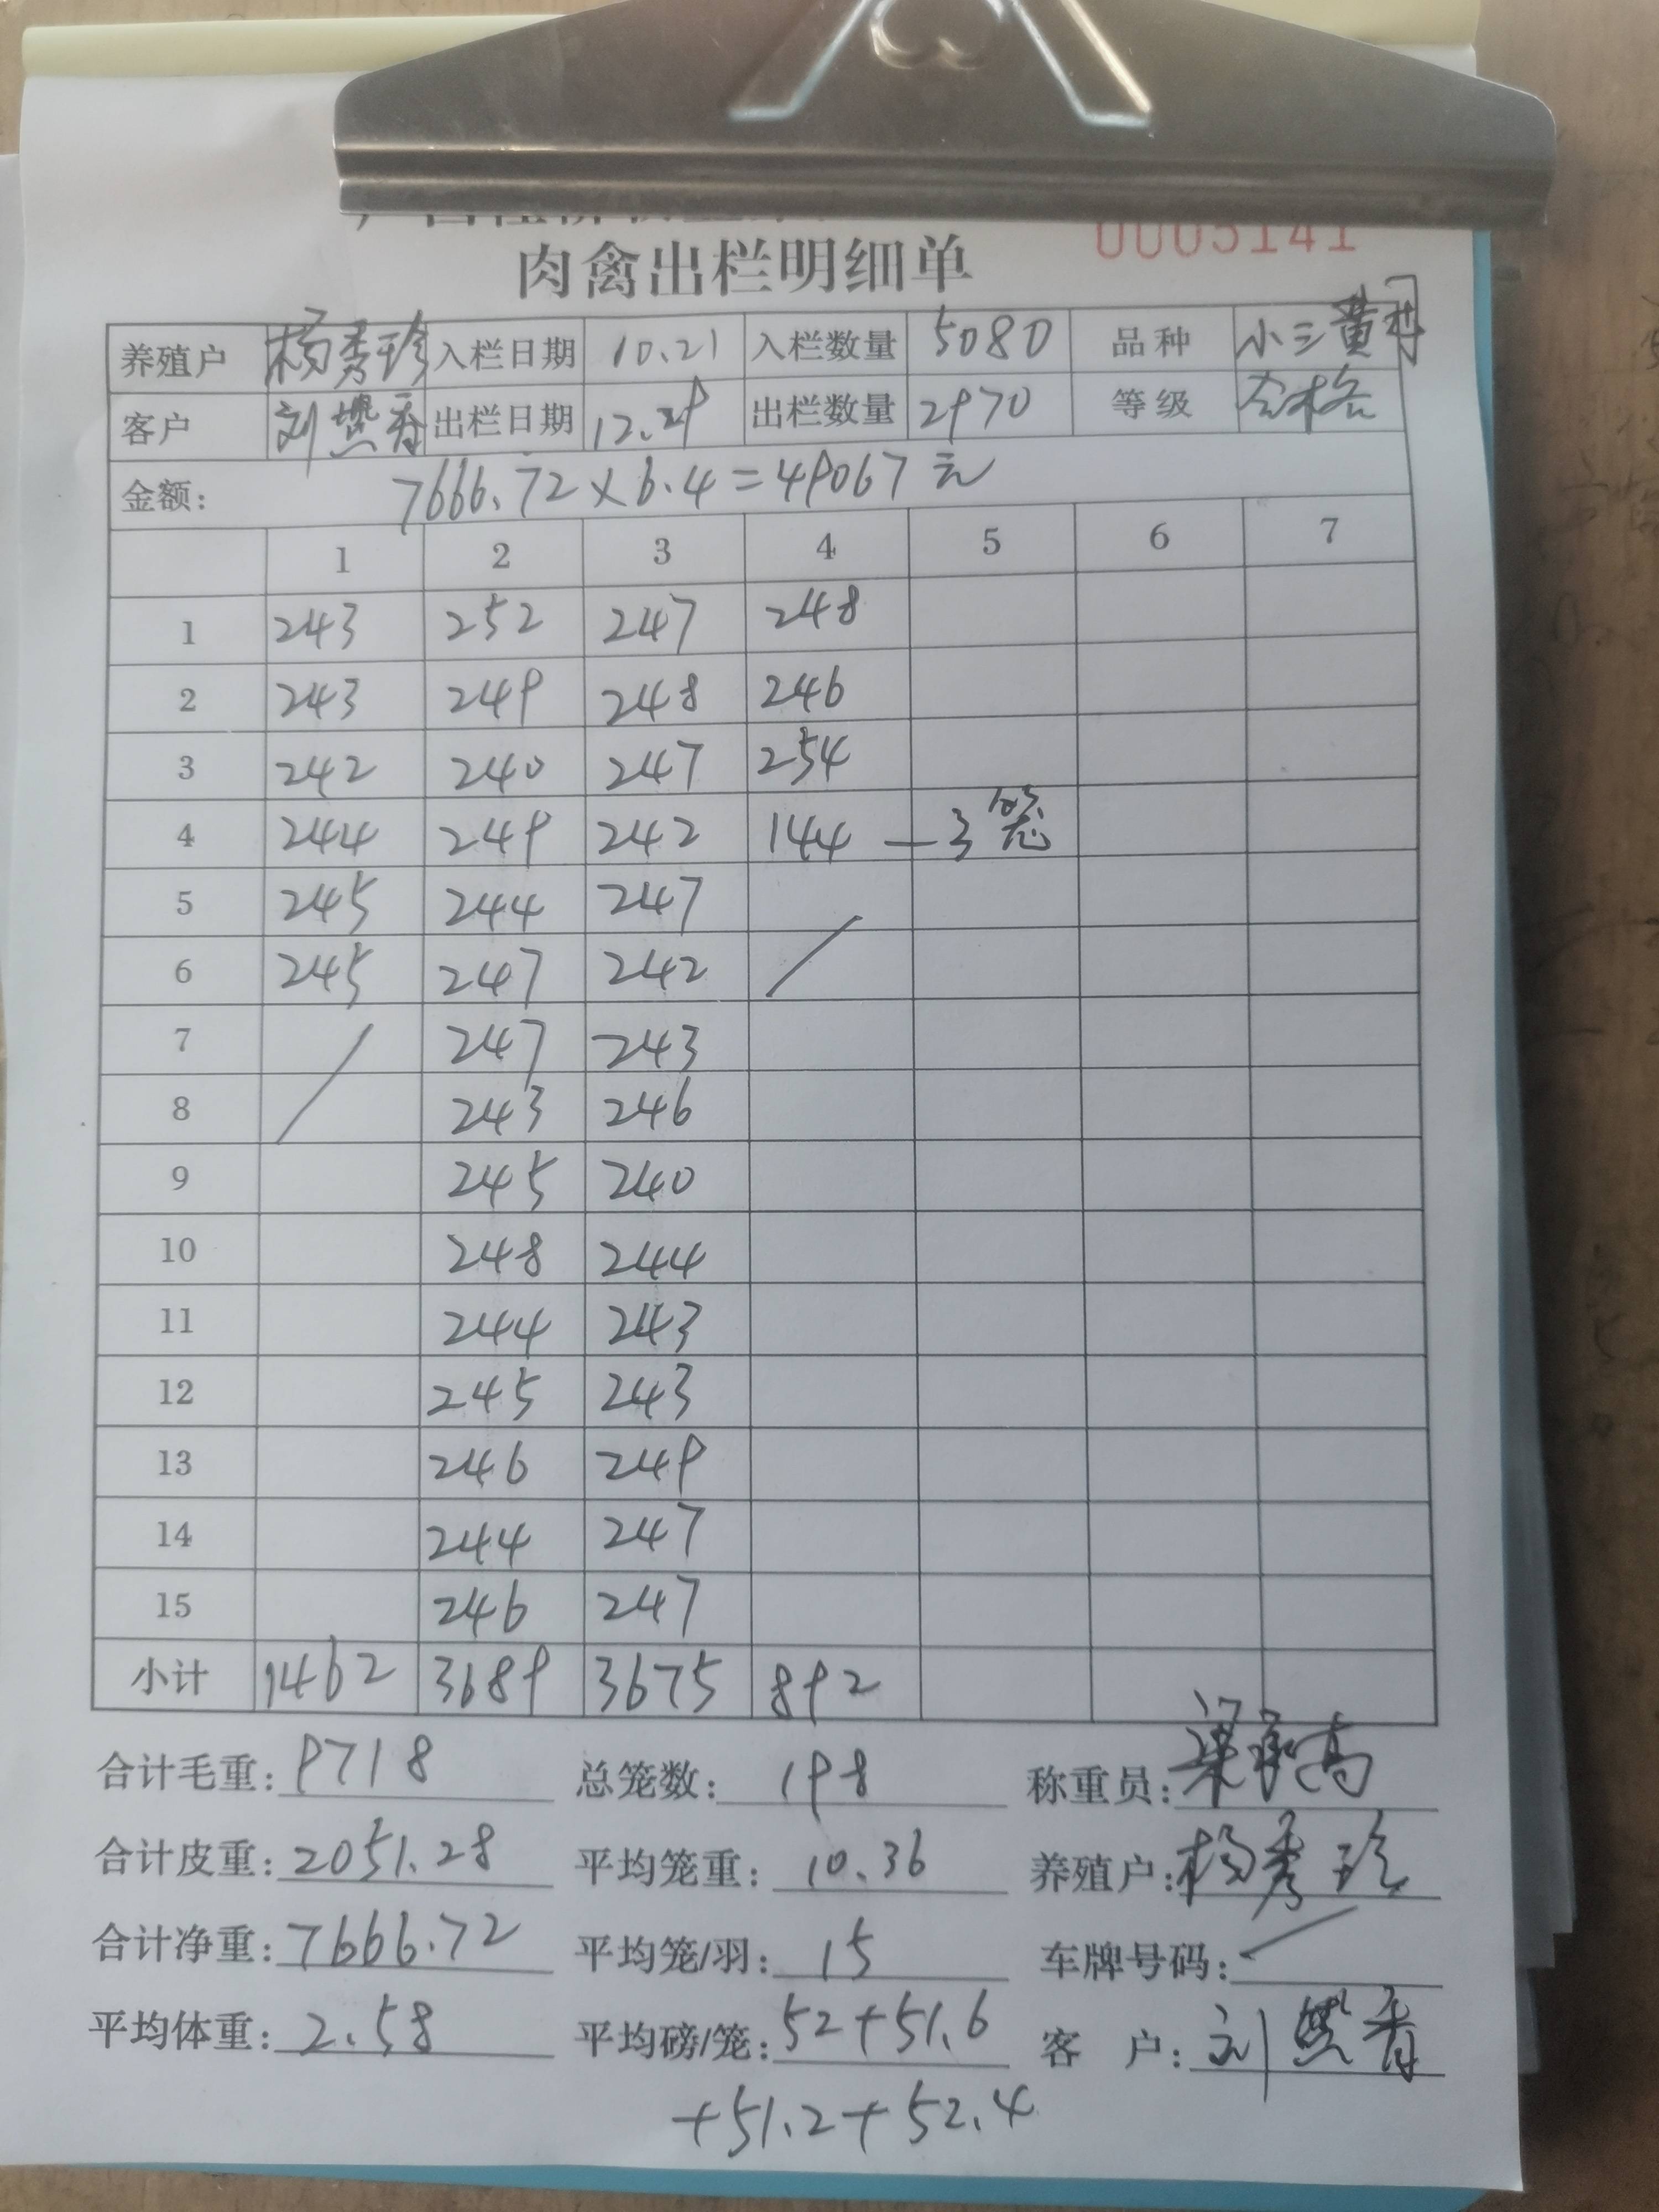 0005141
肉禽出栏明细单
养殖户 杨秀珍 入栏日期 10.21 入栏数量 5080 品种 小三黄
客户 刘燕香 出栏日期 12.29 出栏数量 2970 等级 合格
金额: 7666.72×6.4=49067元
1 2 3 4 5 6 7
1 243 252 247 248
2 243 249 248 246
3 242 240 247 254
4 244 249 242 144 — 3笼
5 245 244 247
6 245 247 242
7 247 243
8 243 246
9 245 240
10 248 244
11 244 243
12 245 243
13 246 249
14 244 247
15 246 247
小计 1462 3689 3675 892
合计毛重: 9718 总笼数: 198 称重员: 梁承高
合计皮重: 2051.28 平均笼重: 10.36 养殖户: 杨秀珍
合计净重: 7666.72 平均笼/羽: 15 车牌号码:
平均体重: 2.58 平均磅/笼: 52+51.6 客 户: 刘燕香
+51.2+52.4